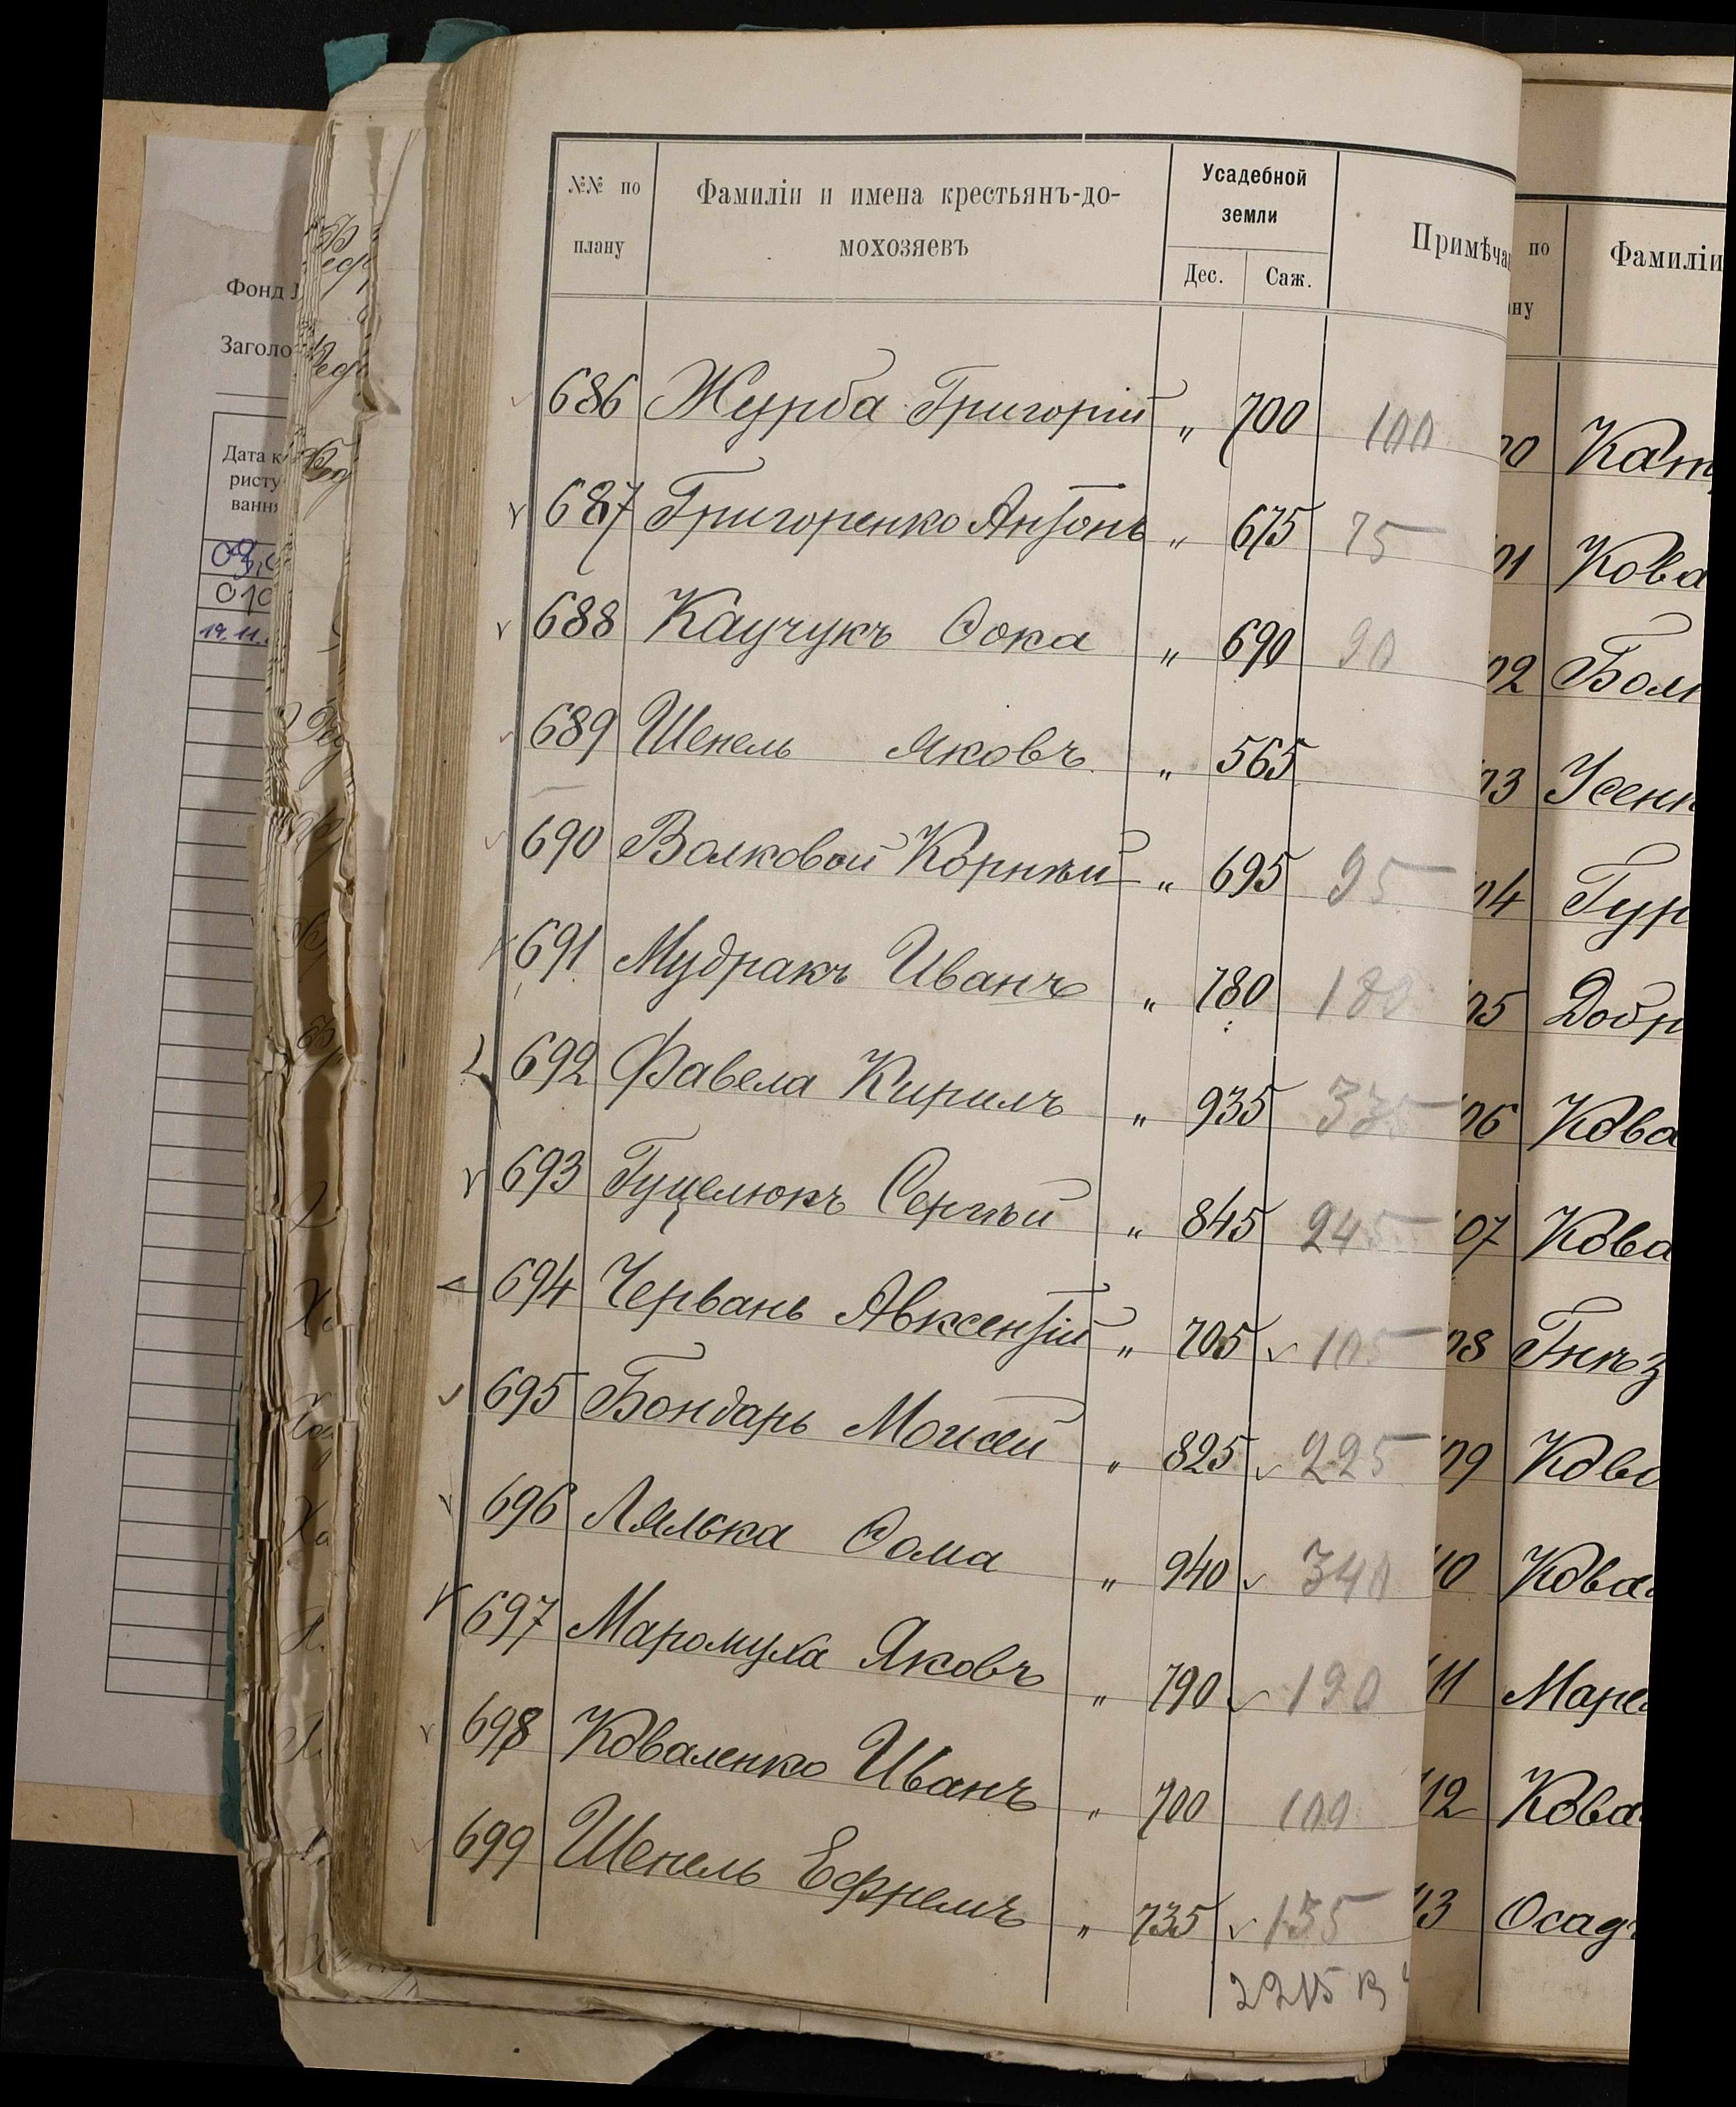 №№ по плану
Фамиліи и имена крестьянъ-до-
мохозяевъ
Усадебной
земли
Дес. Саж.
Примѣча
686 Журба Григорій " 700 100
687 Григоренко Антонъ " 675 75
688 Каучукъ Ѳока " 690 90
689 Шепель Яковъ " 565
690 Волковой Корнѣй " 695 95
691 Мудракъ Иванъ " 780 180
692 Фавела Кирилъ " 935 335
693 Гуцелюкъ Сергѣй " 845 245
694 Червань Авксентій " 705 105
695 Бондарь Моисей " 825 225
696 Лялька Ѳома " 940 340
697 Маромуха Яковъ " 790 190
698 Коваленко Иванъ " 700 100
699 Шепель Ефремъ " 735 135
2215
по
ну
Фамиліи
00 Кат
01 Кова
02 Бол
03 Усен
04 Гур
05 Добр
06 Кова
07 Кова
08 Гнѣз
09 Кова
10 Кова
11 Маре
12 Кова
13 Осад
Фонд
Заголо
Дата к
ристу
ванн
09.0
010
19.11.